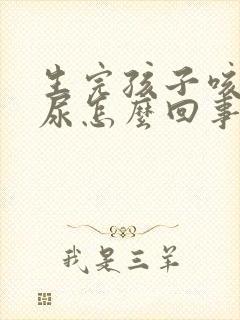 生完孩子咳
尿怎麼回事
我是三羊